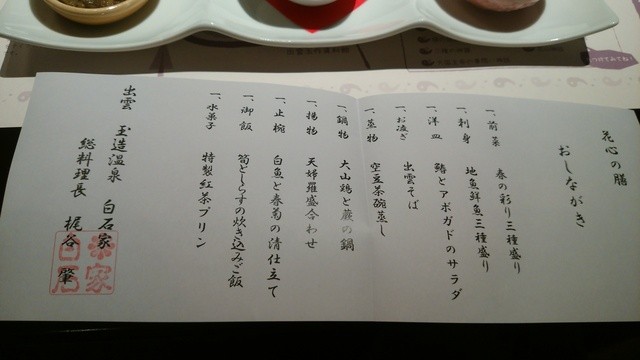 花心の膳
おしながき
一、前菜 春の彩り三種盛り
一、刺身 地魚鮮魚三種盛り
一、洋皿 鰆とアボガドのサラダ
一、お凌ぎ 出雲そば
一、蒸物 空豆茶碗蒸し
一、鍋物 大山鶏と蕨の鍋
一、揚物 天婦羅盛合わせ
一、止椀 白魚と春菊の清仕立て
一、御飯 筍としらすの炊き込みご飯
一、水菓子 特製紅茶プリン
出雲 玉造温泉 白石家
総料理長 梶谷 肇
白石家